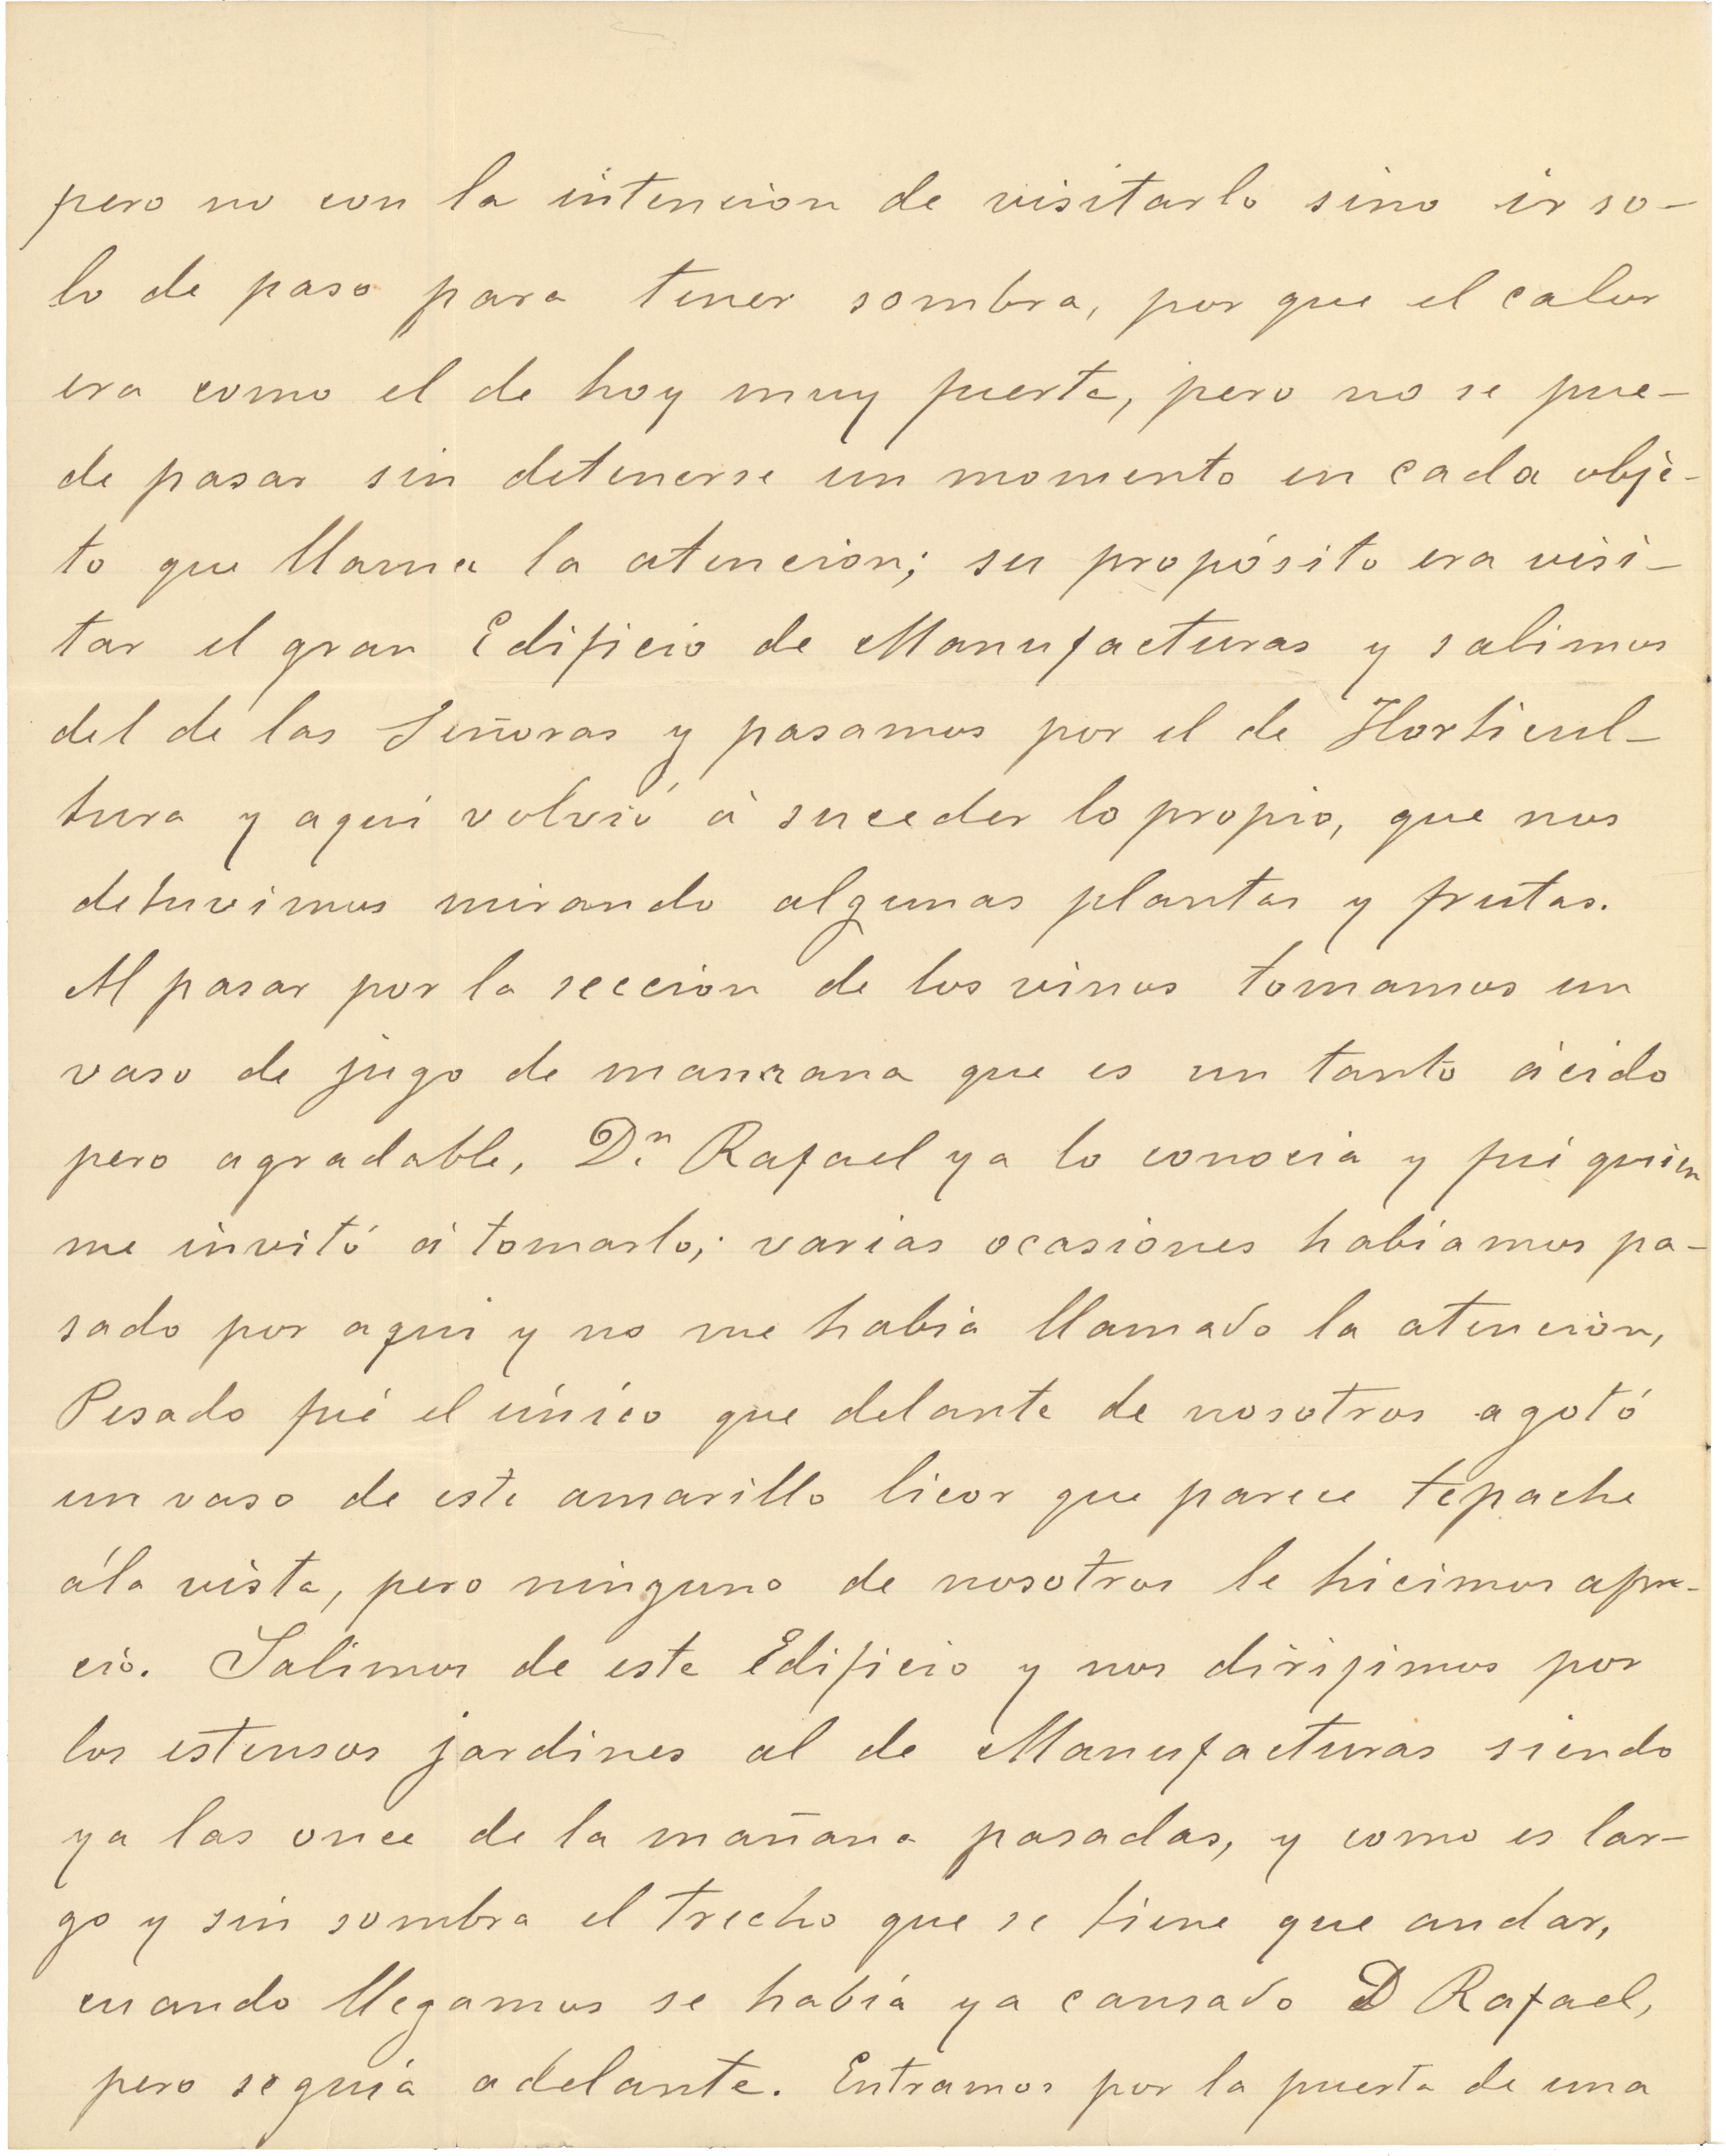 pero no con la intencion de visitarlo sino ir so-
lo de paso para tener sombra, por que el calor
era como el de hoy muy fuerte, pero no se pue-
de pasar sin detenerse un momento en cada obje-
to que llama la atencion; su propósito era visi-
tar el gran Edificio de Manufacturas y salimos
del de las Señoras y pasamos por el de Horticul-
tura y aqui volvió á suceder lo propio, que nos
detuvimos mirando algunas plantas y frutas.
Al pasar por la seccion de los vinos tomamos un
vaso de jugo de manzana que es un tanto ácido
pero agradable, Dn. Rafael ya lo conocia y fué quien
me invitó á tomarlo; varias ocasiones habiamos pa-
sado por aqui y no me habia llamado la atencion,
Pesado fué el único que delante de nosotros agotó
un vaso de este amarillo licor que parece tepache
á la vista, pero ninguno de nosotros le hicimos apre-
cio. Salimos de este Edificio y nos dirijimos por
los estensos jardines al de Manufacturas siendo
ya las once de la mañana pasadas, y como es lar-
go y sin sombra el trecho que se tiene que andar,
cuando llegamos se había ya cansado D Rafael,
pero seguía adelante. Entramos por la puerta de una